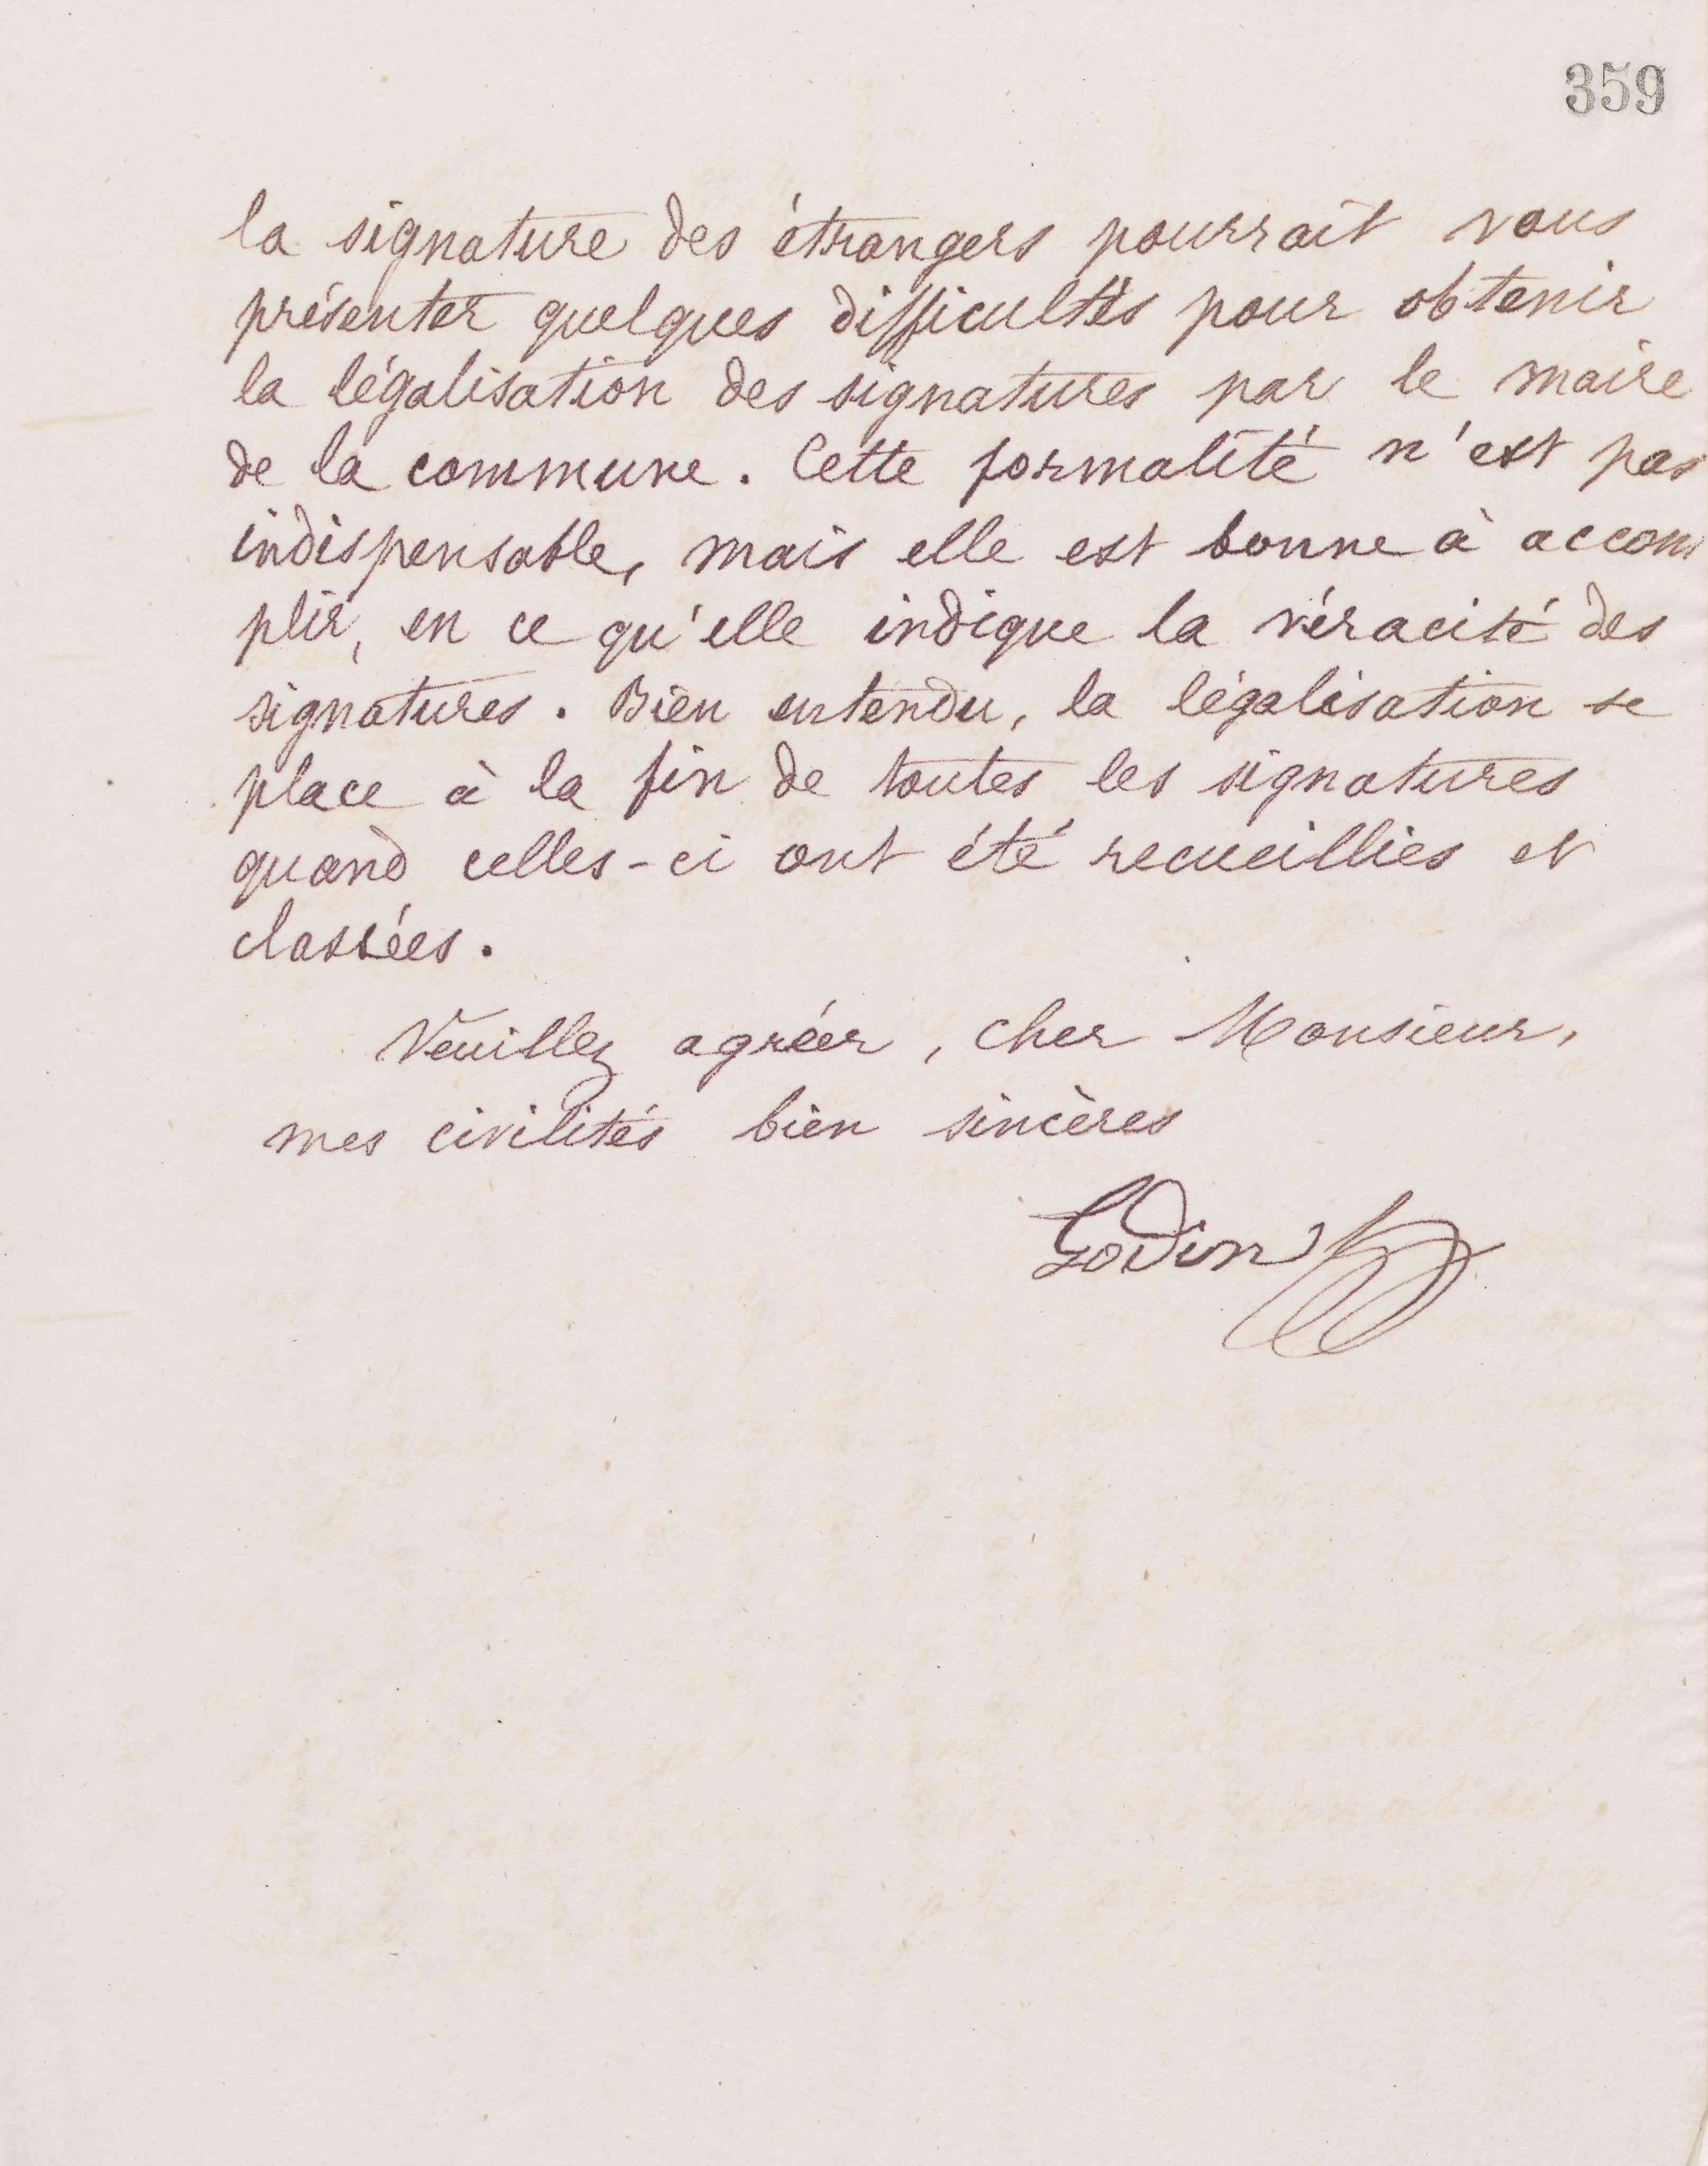 359
la signature des étrangers pourrait vous
présenter quelques difficultés pour obtenir
la légalisation des signatures par le maire
de la commune. Cette formalité n'est pas
indispensable, mais elle est bonne à accom
plir, en ce qu'elle indique la véracité des
signatures. Bien entendu, la légalisation se
place à la fin de toutes les signatures
quand celles-ci ont été recueillies et
classées.
Veuillez agréer, cher Monsieur,
mes civilités bien sincères
Godin